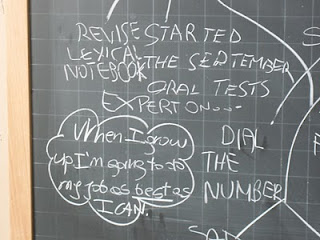 REVISE
LEXICAL
NOTEBOOK
STARTED
THE SEPTEMBER
ORAL TESTS
EXPERT ON...
When I grow
up I'm going to to
my job as best as
I CAN.
DIAL
THE
NUMBER